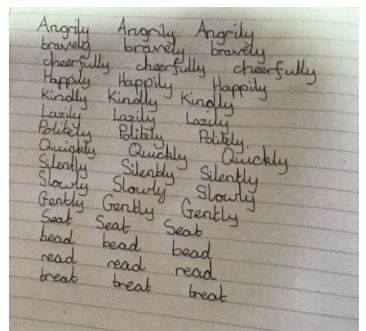 Angrily Angrily Angrily
bravely bravely bravely
cheerfully cheerfully cheerfully
Happily Happily Happily
Kindly Kindly Kindly
Lazily Lazily Lazily
Politely Politely Politely.
Quickly Quickly Quickly
Silently Silently Silently
Slowly Slowly Slowly
Gently Gently Gently
Seat Seat Seat
bead bead bead
read read read
treat treat treat